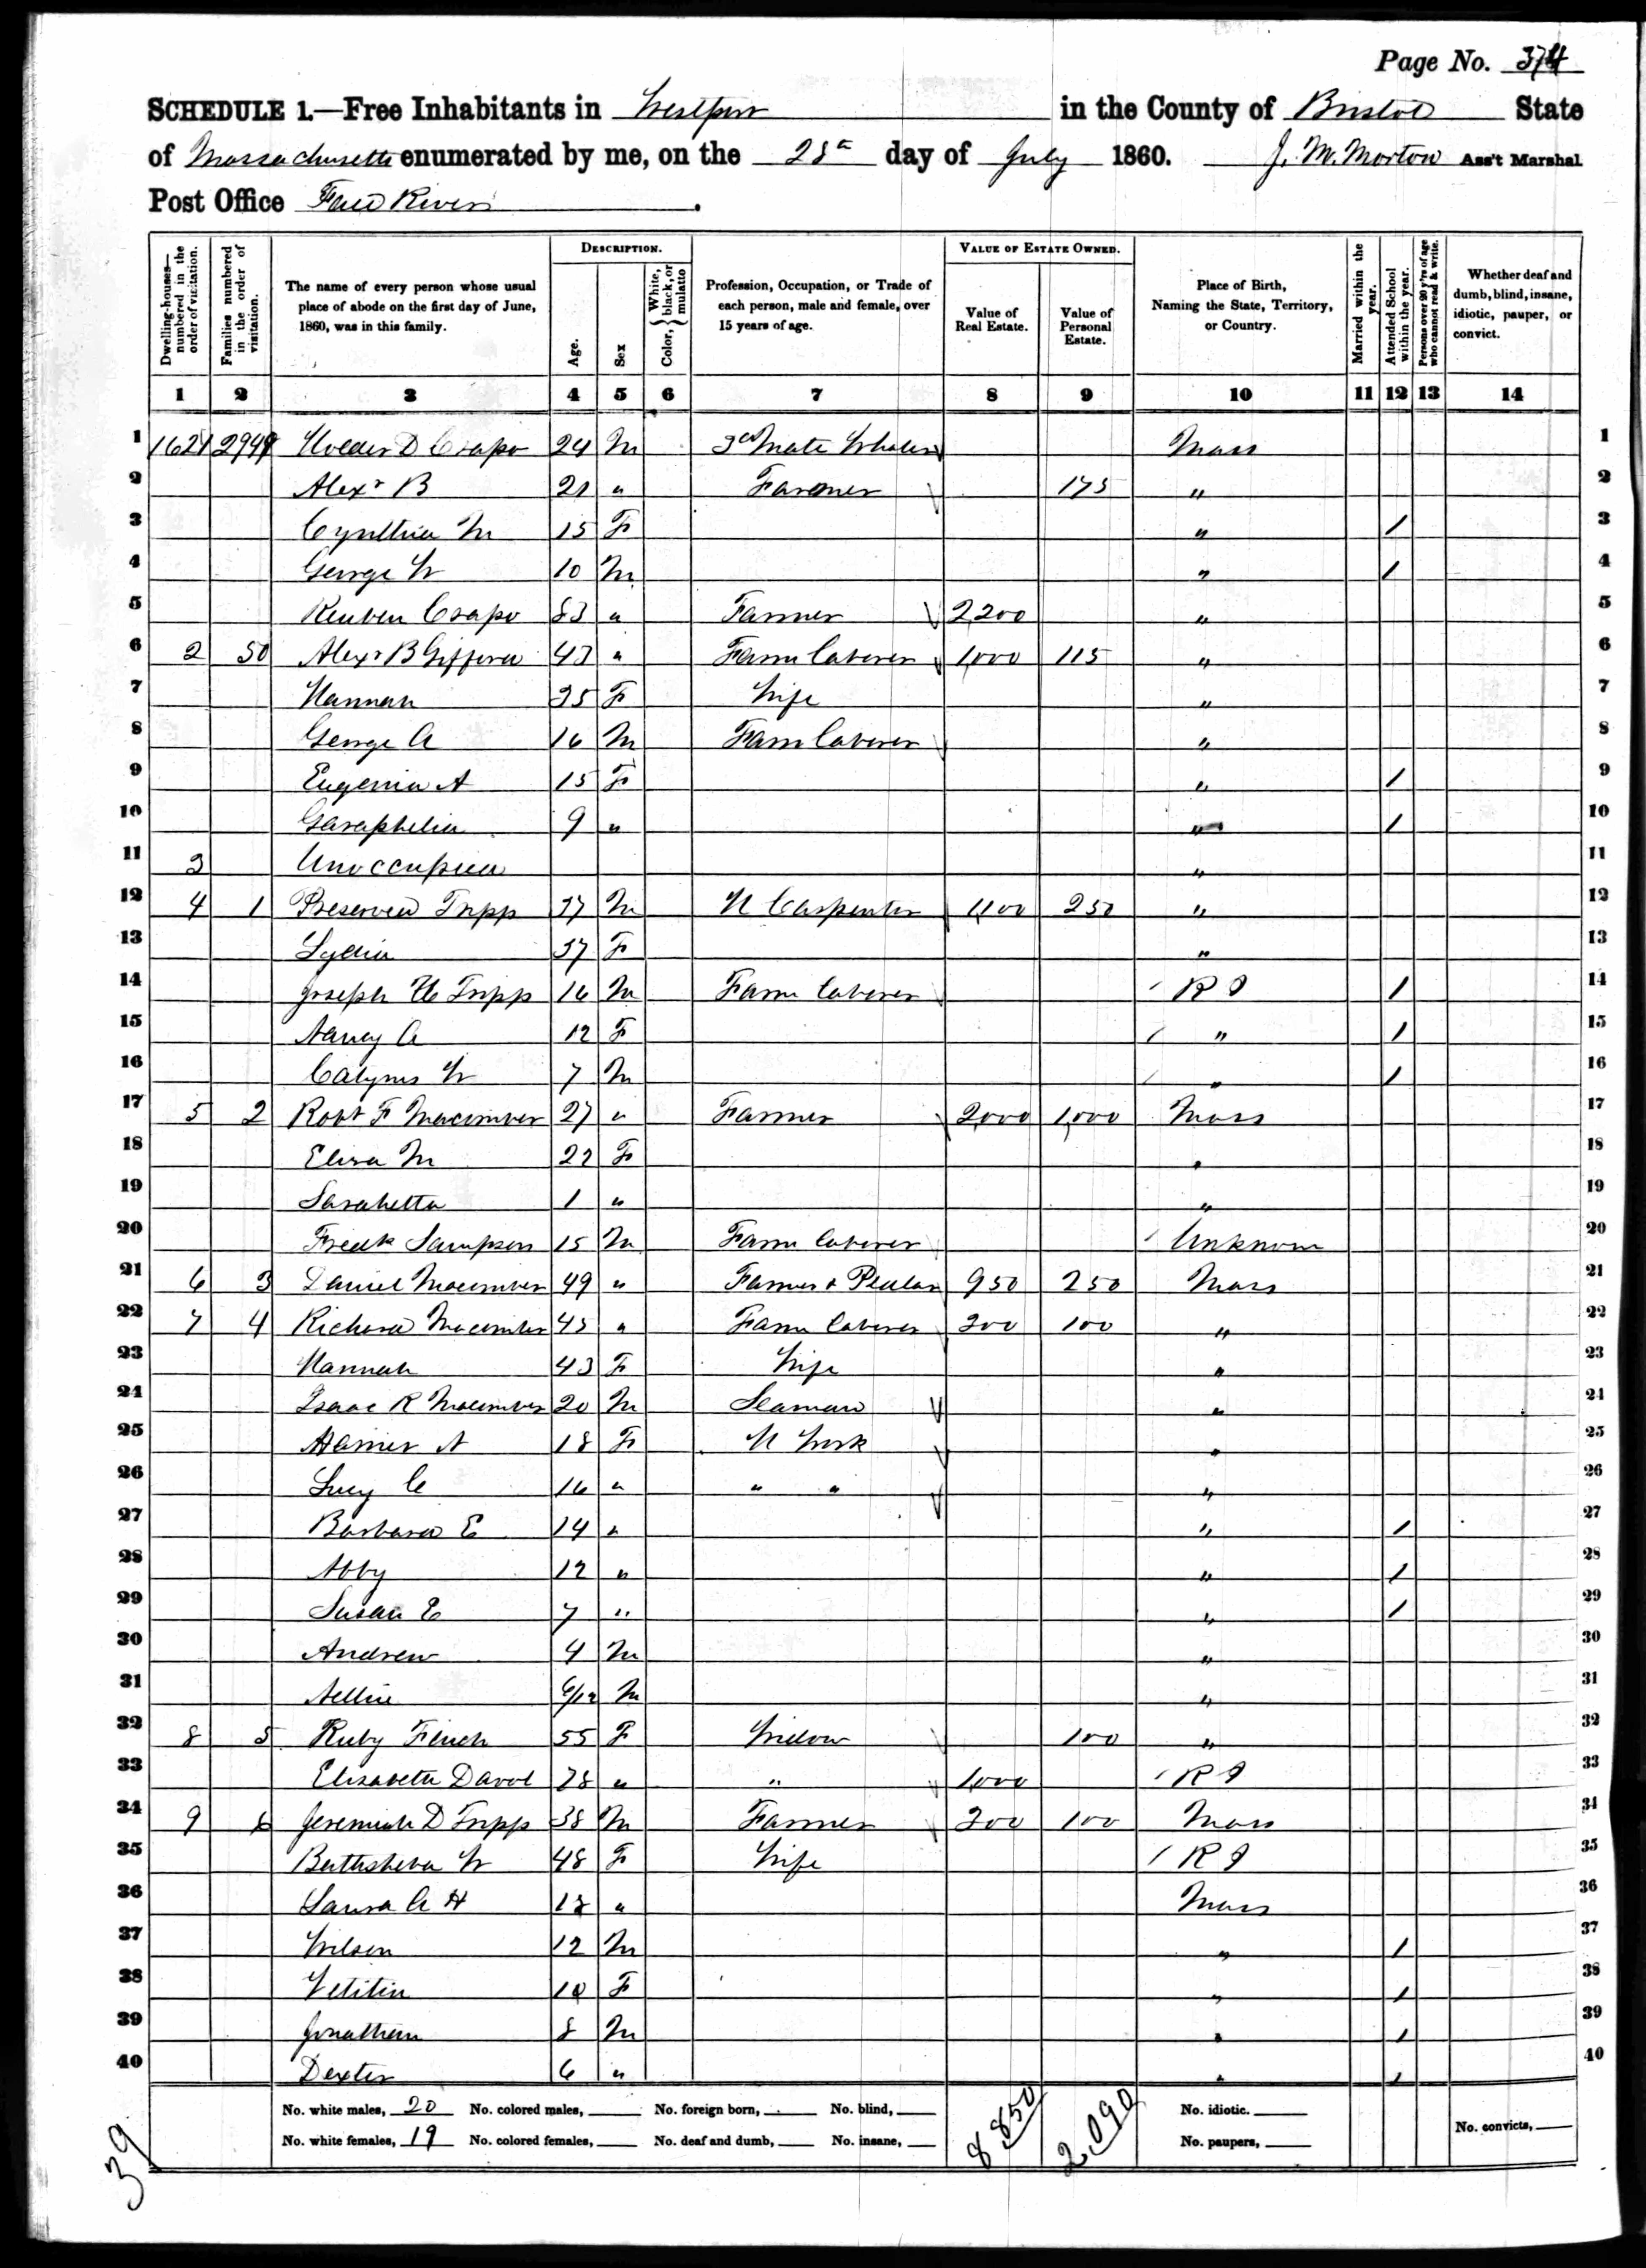 Page No. 374
SCHEDULE 1.—Free Inhabitants in Westport in the County of Bristol State
of Massachusetts enumerated by me, on the 28th day of July 1860. J. M. Morton Ass't Marshal
Post Office Fall River.
Dwelling-houses—numbered in the order of visitation.
Families numbered in the order of visitation.
The name of every person whose usual place of abode on the first day of June, 1860, was in this family.
DESCRIPTION.
Age.
Sex
Color, { White, black, or mulatto
Profession, Occupation, or Trade of each person, male and female, over 15 years of age.
VALUE OF ESTATE OWNED.
Value of Real Estate.
Value of Personal Estate.
Place of Birth, Naming the State, Territory, or Country.
Married within the year.
Attended School within the year.
Persons over 20 y'rs of age who cannot read & write.
Whether deaf and dumb, blind, insane, idiotic, pauper, or convict.
1 2 3 4 5 6 7 8 9 10 11 12 13 14
1 1621 2949 Holder D Crapo 24 M 3d Mate Whaler Mass 1
2 Alexr B 21 " Farmer 175 " 2
3 Cynthia M 15 F " / 3
4 George W 10 M " / 4
5 Reuben Crapo 83 " Farmer 2200 " 5
6 2 50 Alexr B Gifford 43 " Farm laborer 1,000 115 " 6
7 Hannah 35 F Wife " 7
8 George A 16 M Farm laborer " 8
9 Eugenia A 15 F " / 9
10 Garaphelia 9 " " / 10
11 3 Unoccupied " 11
12 4 1 Preserved Tripp 37 M H Carpenter 1,100 250 " 12
13 Lydia 37 F " 13
14 Joseph Tripp 16 M Farm laborer R I / 14
15 Nancy A 12 F " / 15
16 W 7 M " / 16
17 5 2 Robt F Macomber 27 " Farmer 2,000 1,000 Mass 17
18 Eliza M 22 F " 18
19 Sarahetta 1 " " 19
20 Fredk Sampson 15 M Farm laborer Unknown 20
21 6 3 Daniel Macomber 49 " Farmer & Pedlar 950 250 Mass 21
22 7 4 Richard Macomber 45 " Farm laborer 200 100 " 22
23 Hannah 43 F Wife " 23
24 Isaac R Macomber 20 M Seaman " 24
25 A 18 F H Work " 25
26 Lucy C 16 " " " " 26
27 Barbara E 14 " " / 27
28 Abby 12 " " / 28
29 Susan E 7 " " / 29
30 Andrew 4 M " 30
31 Nellie 6/12 M " 31
32 8 5 Ruby Finch 55 F Widow 100 " 32
33 Elizabeth Davol 78 " " 1,000 R I 33
34 9 6 Jeremiah D Tripp 38 M Farmer 200 100 Mass 34
35 Bathsheba W 48 F Wife R I 35
36 Laura A H 18 " Mass 36
37 Wilson 12 M " / 37
38 Letitia 10 F " / 38
39 Jonathan 8 M " / 39
40 Dexter 6 " " / 40
No. white males, 20 No. colored males, No. foreign born, No. blind, 8,850 2,090 No. idiotic.
No. white females, 19 No. colored females, No. deaf and dumb, No. insane, No. paupers, No. convicts,
39